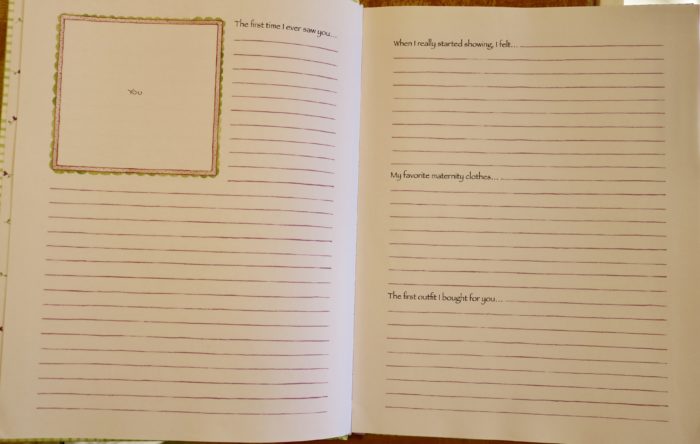 The first time I ever saw you...
You
When I really started showing, I felt...
My favorite maternity clothes...
The first outfit I bought for you...